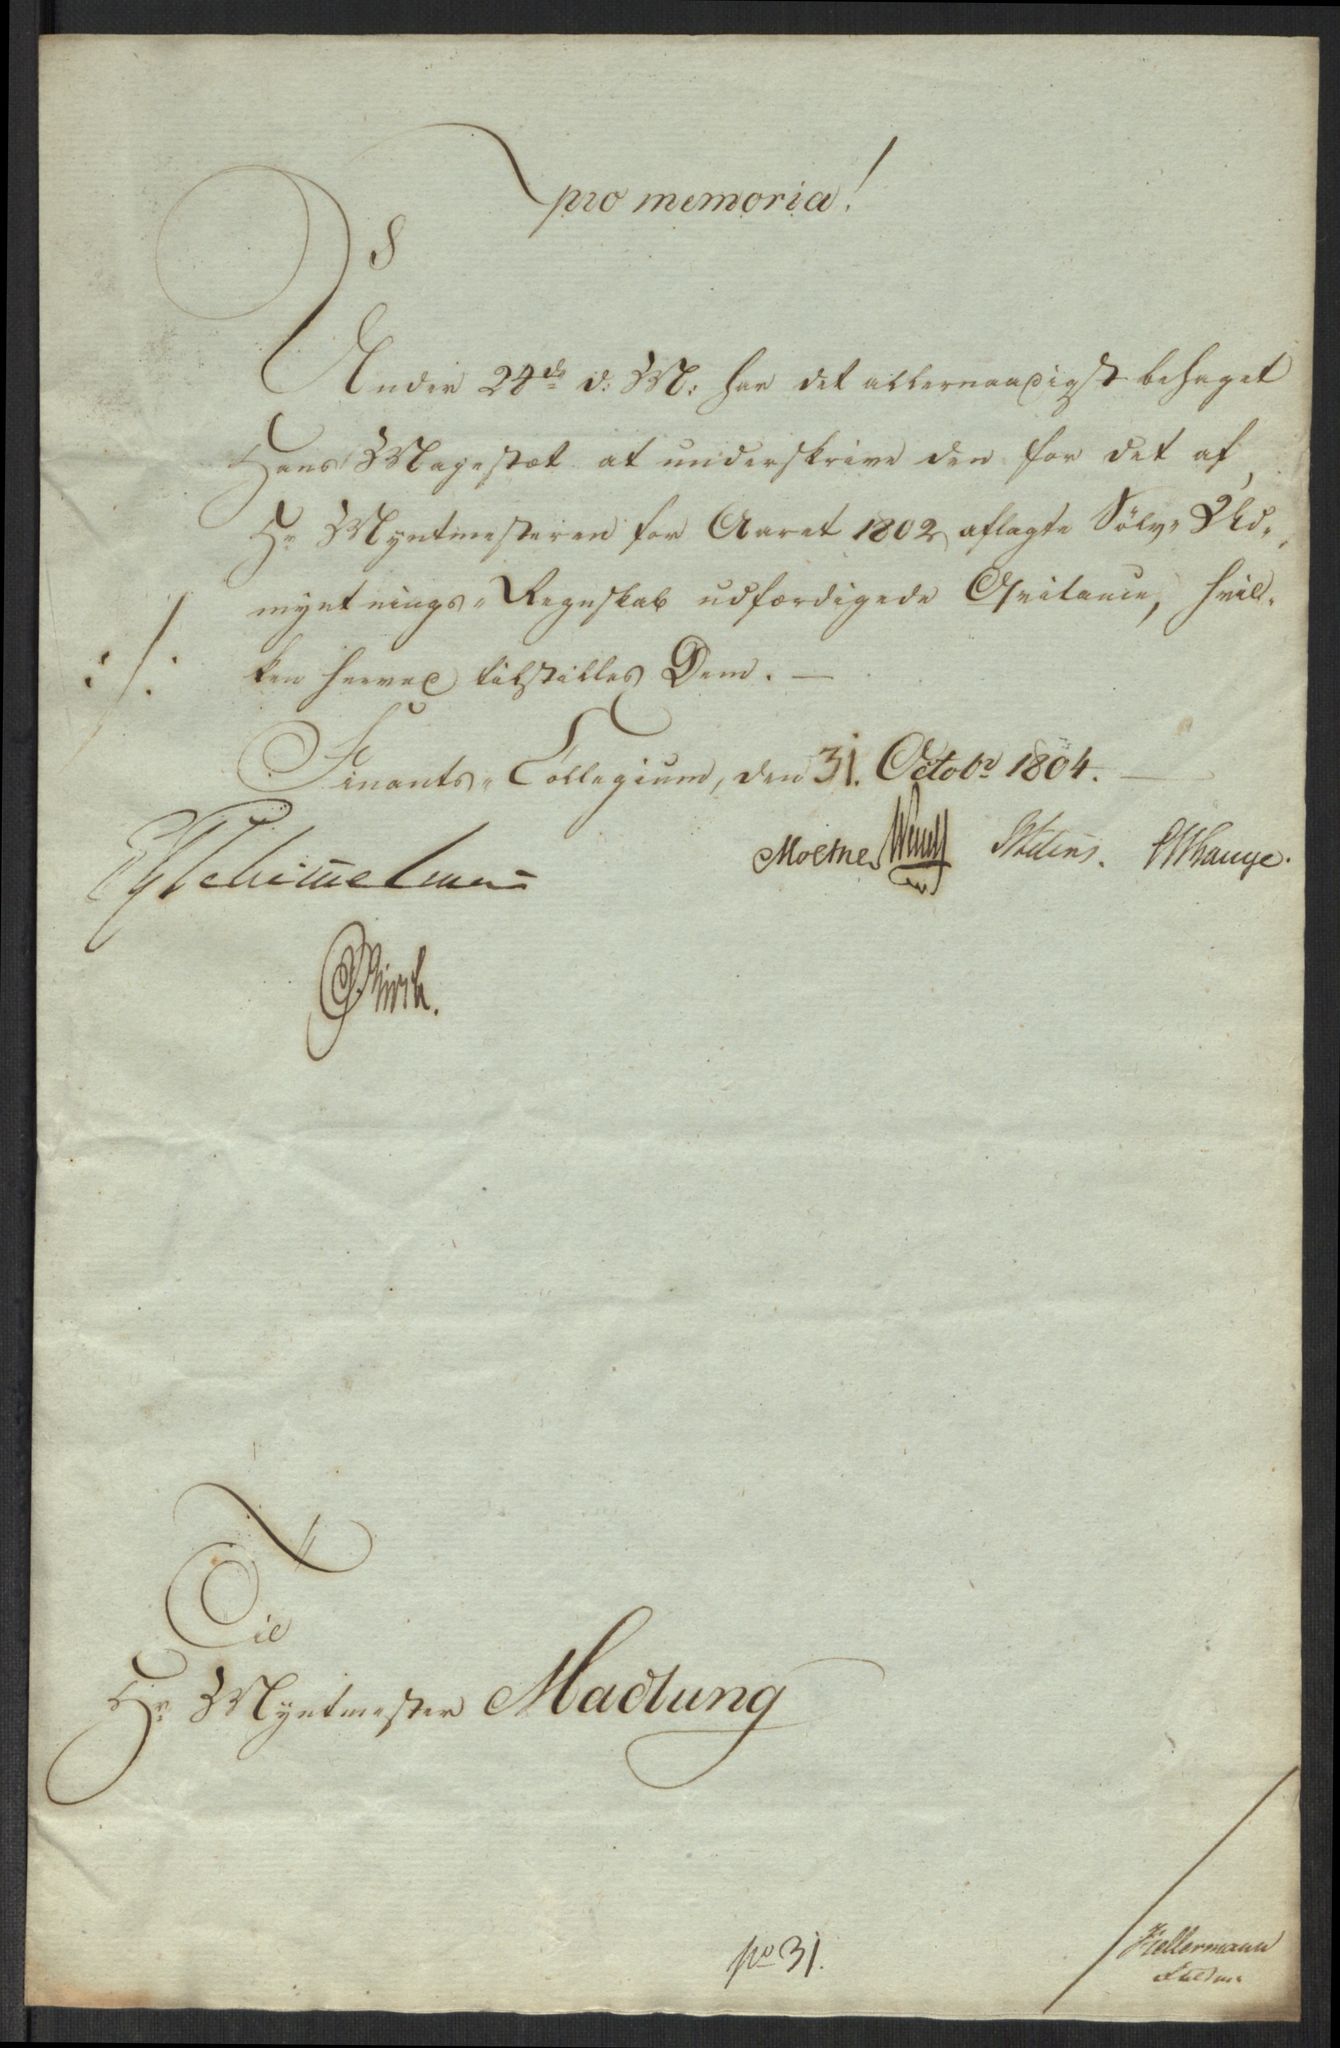 pro memoria!
Under 24de d: M: har det allernaadigst behaget
Hans Majestæt at underskrive den for det af
Hr Myntmesteren for Aaret 1802 aflagte Sölv-Ud-
myntnings-Regnskab udfærdigede Qvitance, hvil-
./. ken herved tilstilles Dem. —
Finants-Collegium, den 31. Octobr 1804. —
Schimmelmann Moestue Wendt Stilling. Lange.
Birch.
Til
Hr Myntmester Madlung
No 31.
Kellermann